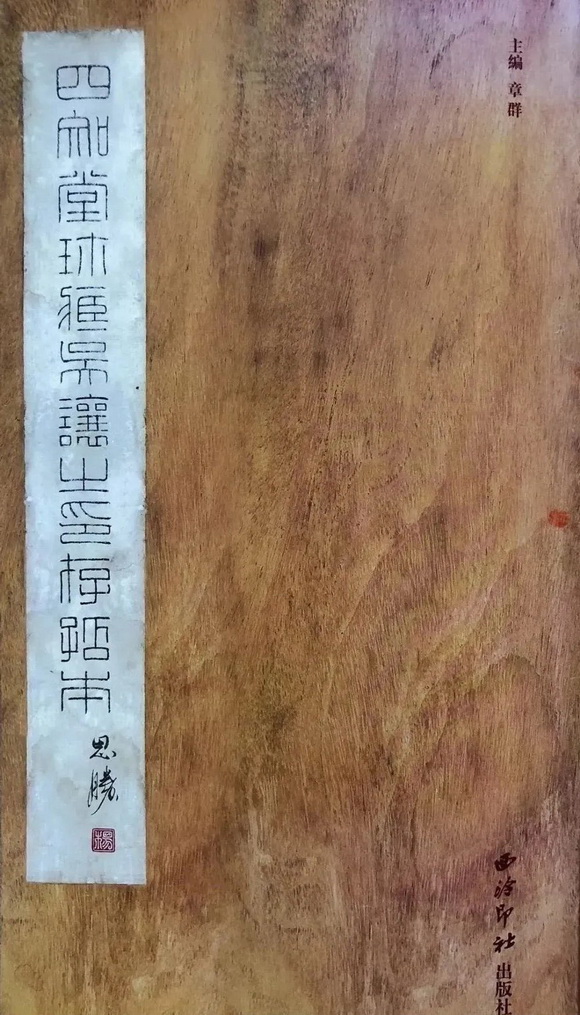 主编 章群
四知堂珎臧吳讓之印存拓本
思勝
楊
西泠印社出版社